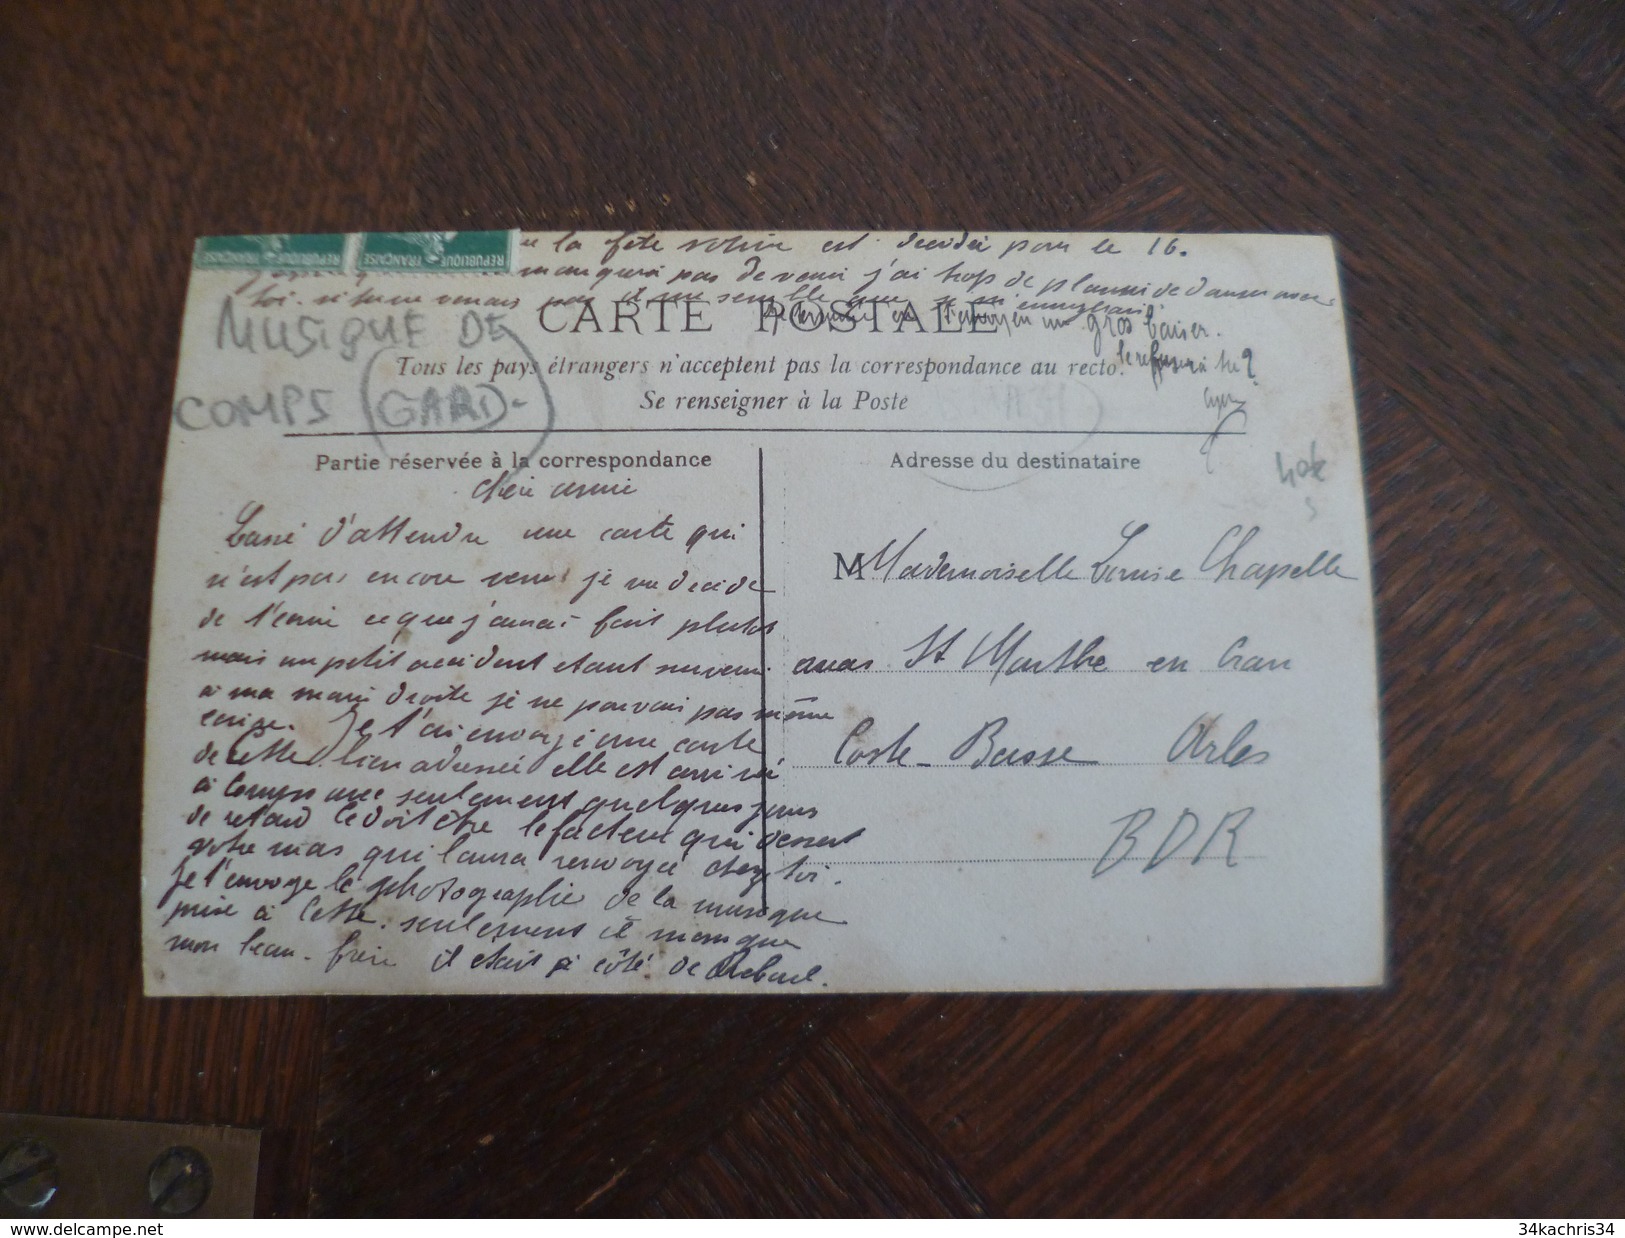 la fête votive est décidé pour le 16.
manquera pas de venir j'ai trop de plaisir de danser avec
toi. si tu ne venais pas il me semble que je m'ennuyerai
t'envoyen un gros baiser.
le refusera tu ?
RÉPUBLIQUE FRANÇAISE RÉPUBLIQUE FRANÇAISE
MUSIQUE DE
COMPS (GARD-
CARTE POSTALE
Tous les pays étrangers n'acceptent pas la correspondance au recto.
Se renseigner à la Poste
Partie réservée à la correspondance
Adresse du destinataire
40€
Cheri amie
Lassé d'attendre une carte qui
n'est pas encore venu je me decide
de t'ecrire ce que j'aurai fait plutot
mais un petit accident etant survenu
a ma main droite je ne pouvais pas même
ecrire. Je t'ai envoyé une carte
de Cette bien adressée elle est arrivé
à Comps avec seulement quelques jours
de retard ce doit être le facteur qui dessert
votre mas qui l'aura renvoyée chez toi.
Je t'envoye le photographie de la musique
prise à Cette. seulement il manque
mon beau-frère il etait à côté de
M Mademoiselle Louise Chapelle
mas St Marthe en Crau
Coste-Basse Arles
BDR
delcampe.net
34kachris34